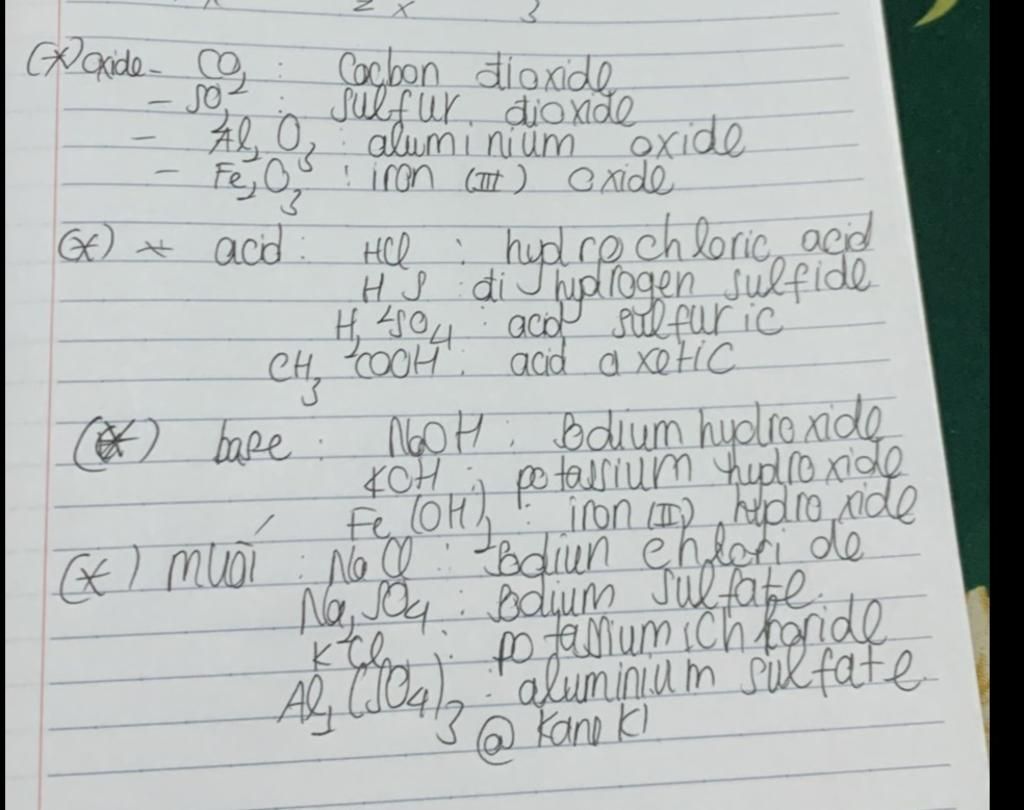 (*) oxide - CO2 : Cacbon dioxide
- SO2 : sulfur dioxide
- Al2O3 : aluminium oxide
- Fe2O3 : iron (III) oxide
(*) * acid : HCl : hydrochloric acid
H2S : di hydrogen sulfide
H2SO4 : acid sulfuric
CH3COOH : acid axetic
(*) base : NaOH : Sodium hydroxide
KOH : potassium hydroxide
Fe(OH)2 : iron (II) hydroxide
(*) muối : NaCl : Sodiun chloride
Na2SO4 : Sodium sulfate
KCl : potassium chloride
Al2(SO4)3 : aluminium sulfate
@ KanoKI